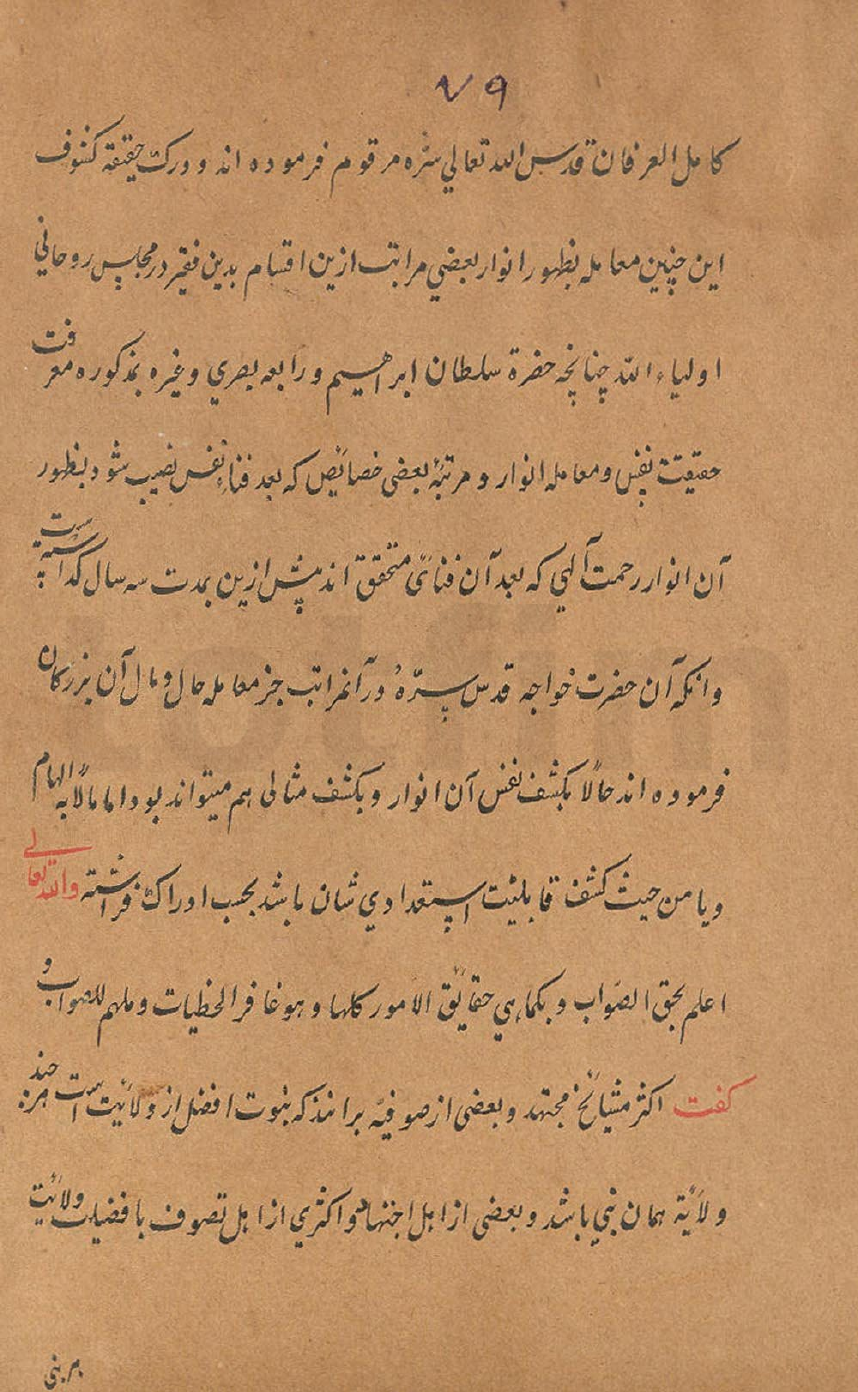 ۷۹
کامل العرفان قدس الله تعالي سرّه مرقوم فرموده اند و درک حقیقة کشوف
این چنین معامله بظهور انوار بعضي مراتب ازین اقسام بدین فقیر در مجلس روحاني
اولیاء الله چنانچه حضرة سلطان ابراهیم و رابعه بصري و غیره مذکوره معرفت
حقیقت نفس و معامله انوار و مرتبهٔ بعضی خصائص که بعد فناء نفس نصیب شود بظهور
آن انوار رحمت آلهي که بعد آن فنائی متحقق اند پیش ازین بمدت سه سال گذشته است
و انکه آن حضرت خواجه قدس سرّه در آنمراتب جز معامله حال و مال آن بزرکان
فرموده اند حالاً بکشف نفس آن انوار و بکشف مثالی هم میتواند بود اما مالاً به الهام
و یا من حیث کشف قابلیّت استعدادي شان باشد بحسب ادراک فراشته والله تعالے
اعلم بحق الصّواب و بکماهي حقایق الامور کلها و هو غافر الخطیات و ملهم للصواب و
کفت اکثر مشایخ مجتهد و بعضی از صوفیّه برانند که نبوت افضل از ولایت است هر چند
ولایة همان نبي باشد و بعضی از اهل اجتهاد و اکثري از اهل تصوف بافضیلت ولایت
بر نبی